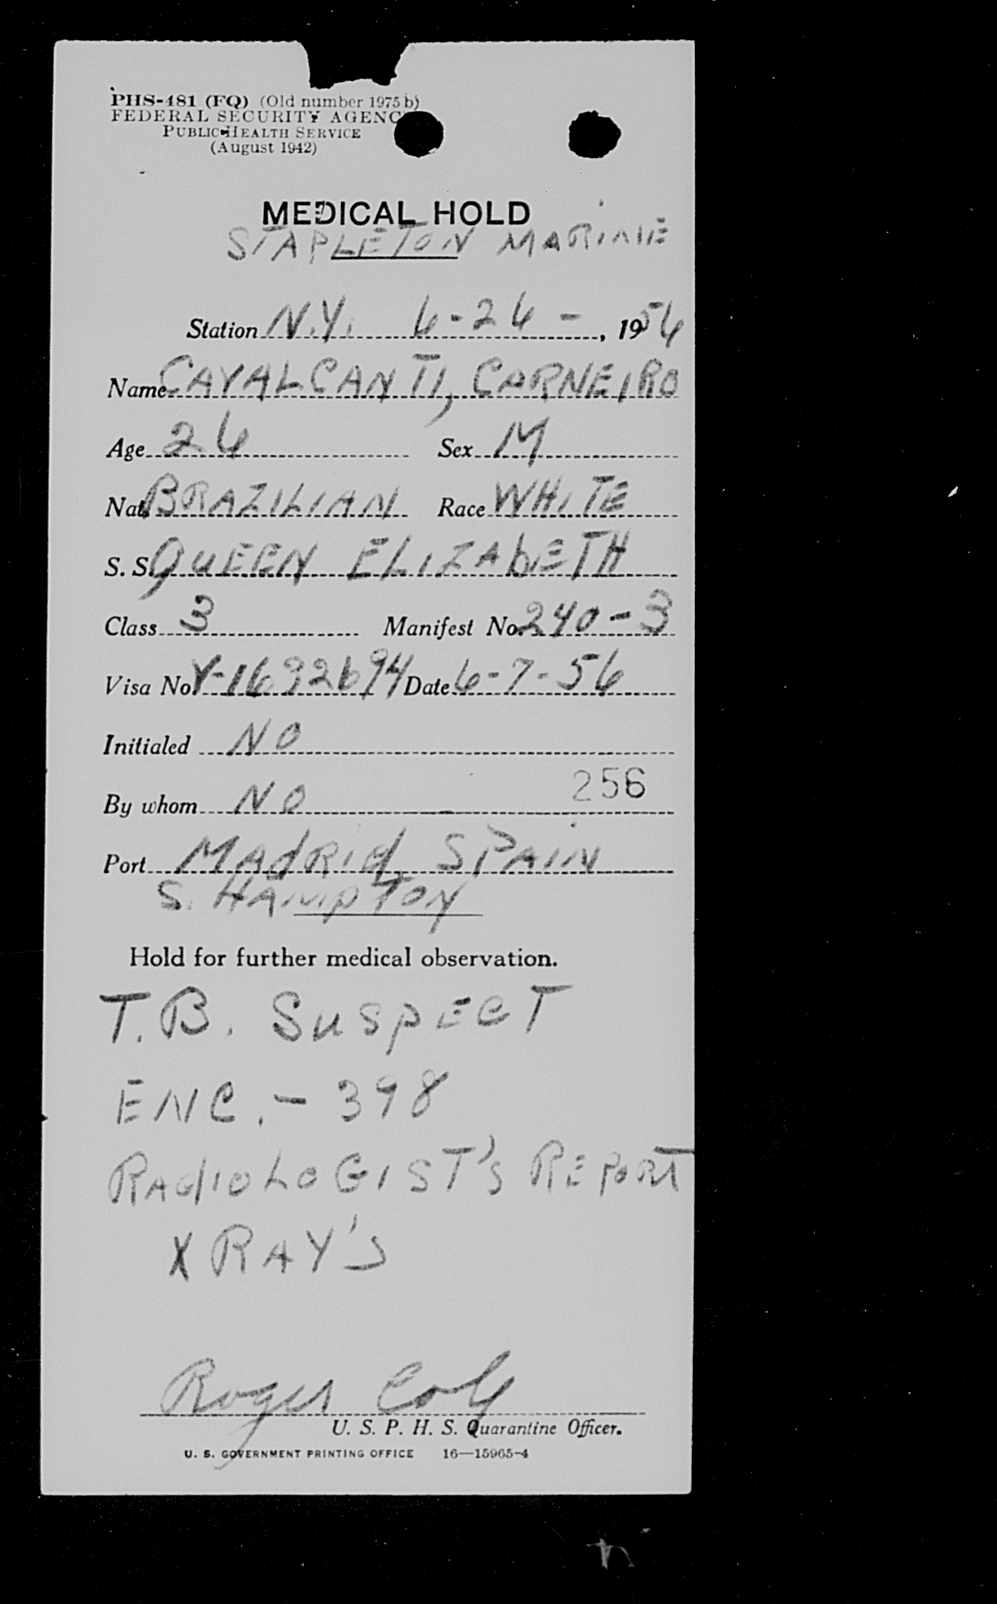 PHS-481 (FQ) (Old number 1975 b)
FEDERAL SECURITY AGENC
PUBLIC HEALTH SERVICE
(August 1942)
MEDICAL HOLD
STAPLETON MARINE
Station N.Y. 6-26-, 1956
Name CAVALCANTI, CARNEIRO
Age 26 Sex M
Nat. BRAZILIAN Race WHITE
S. S. QUEEN ELIZABETH
Class 3 Manifest No. 240-3
Visa No. V-1692694 Date 6-7-56
Initialed NO
256
By whom NO
Port MADRID, SPAIN
S. HAMPTON
Hold for further medical observation.
T.B. SUSPECT
ENC.- 398
RADIOLOGIST'S REPORT
X RAY'S
Roger
U. S. P. H. S. Quarantine Officer.
U. S. GOVERNMENT PRINTING OFFICE 16—15965-4